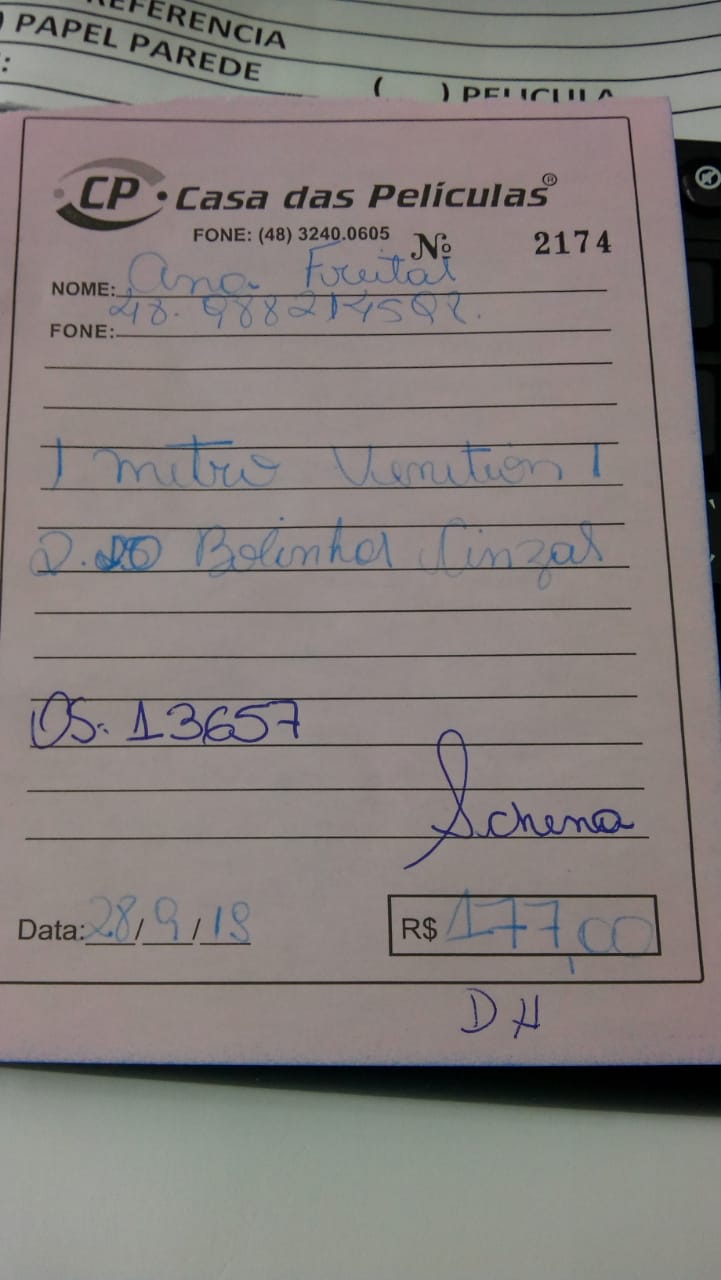 REFERENCIA
) PAPEL PAREDE
:
( ) PELICULA
CP · Casa das Películas®
FONE: (48) 3240.0605 Nº 2174
NOME: Ana Freitas
FONE: 48. 988214592.
1 metro Venetion 1
2.20 Bolinha Cinzas
OS. 13657
Schena
Data: 28/9/19
R$ 177,00
DH